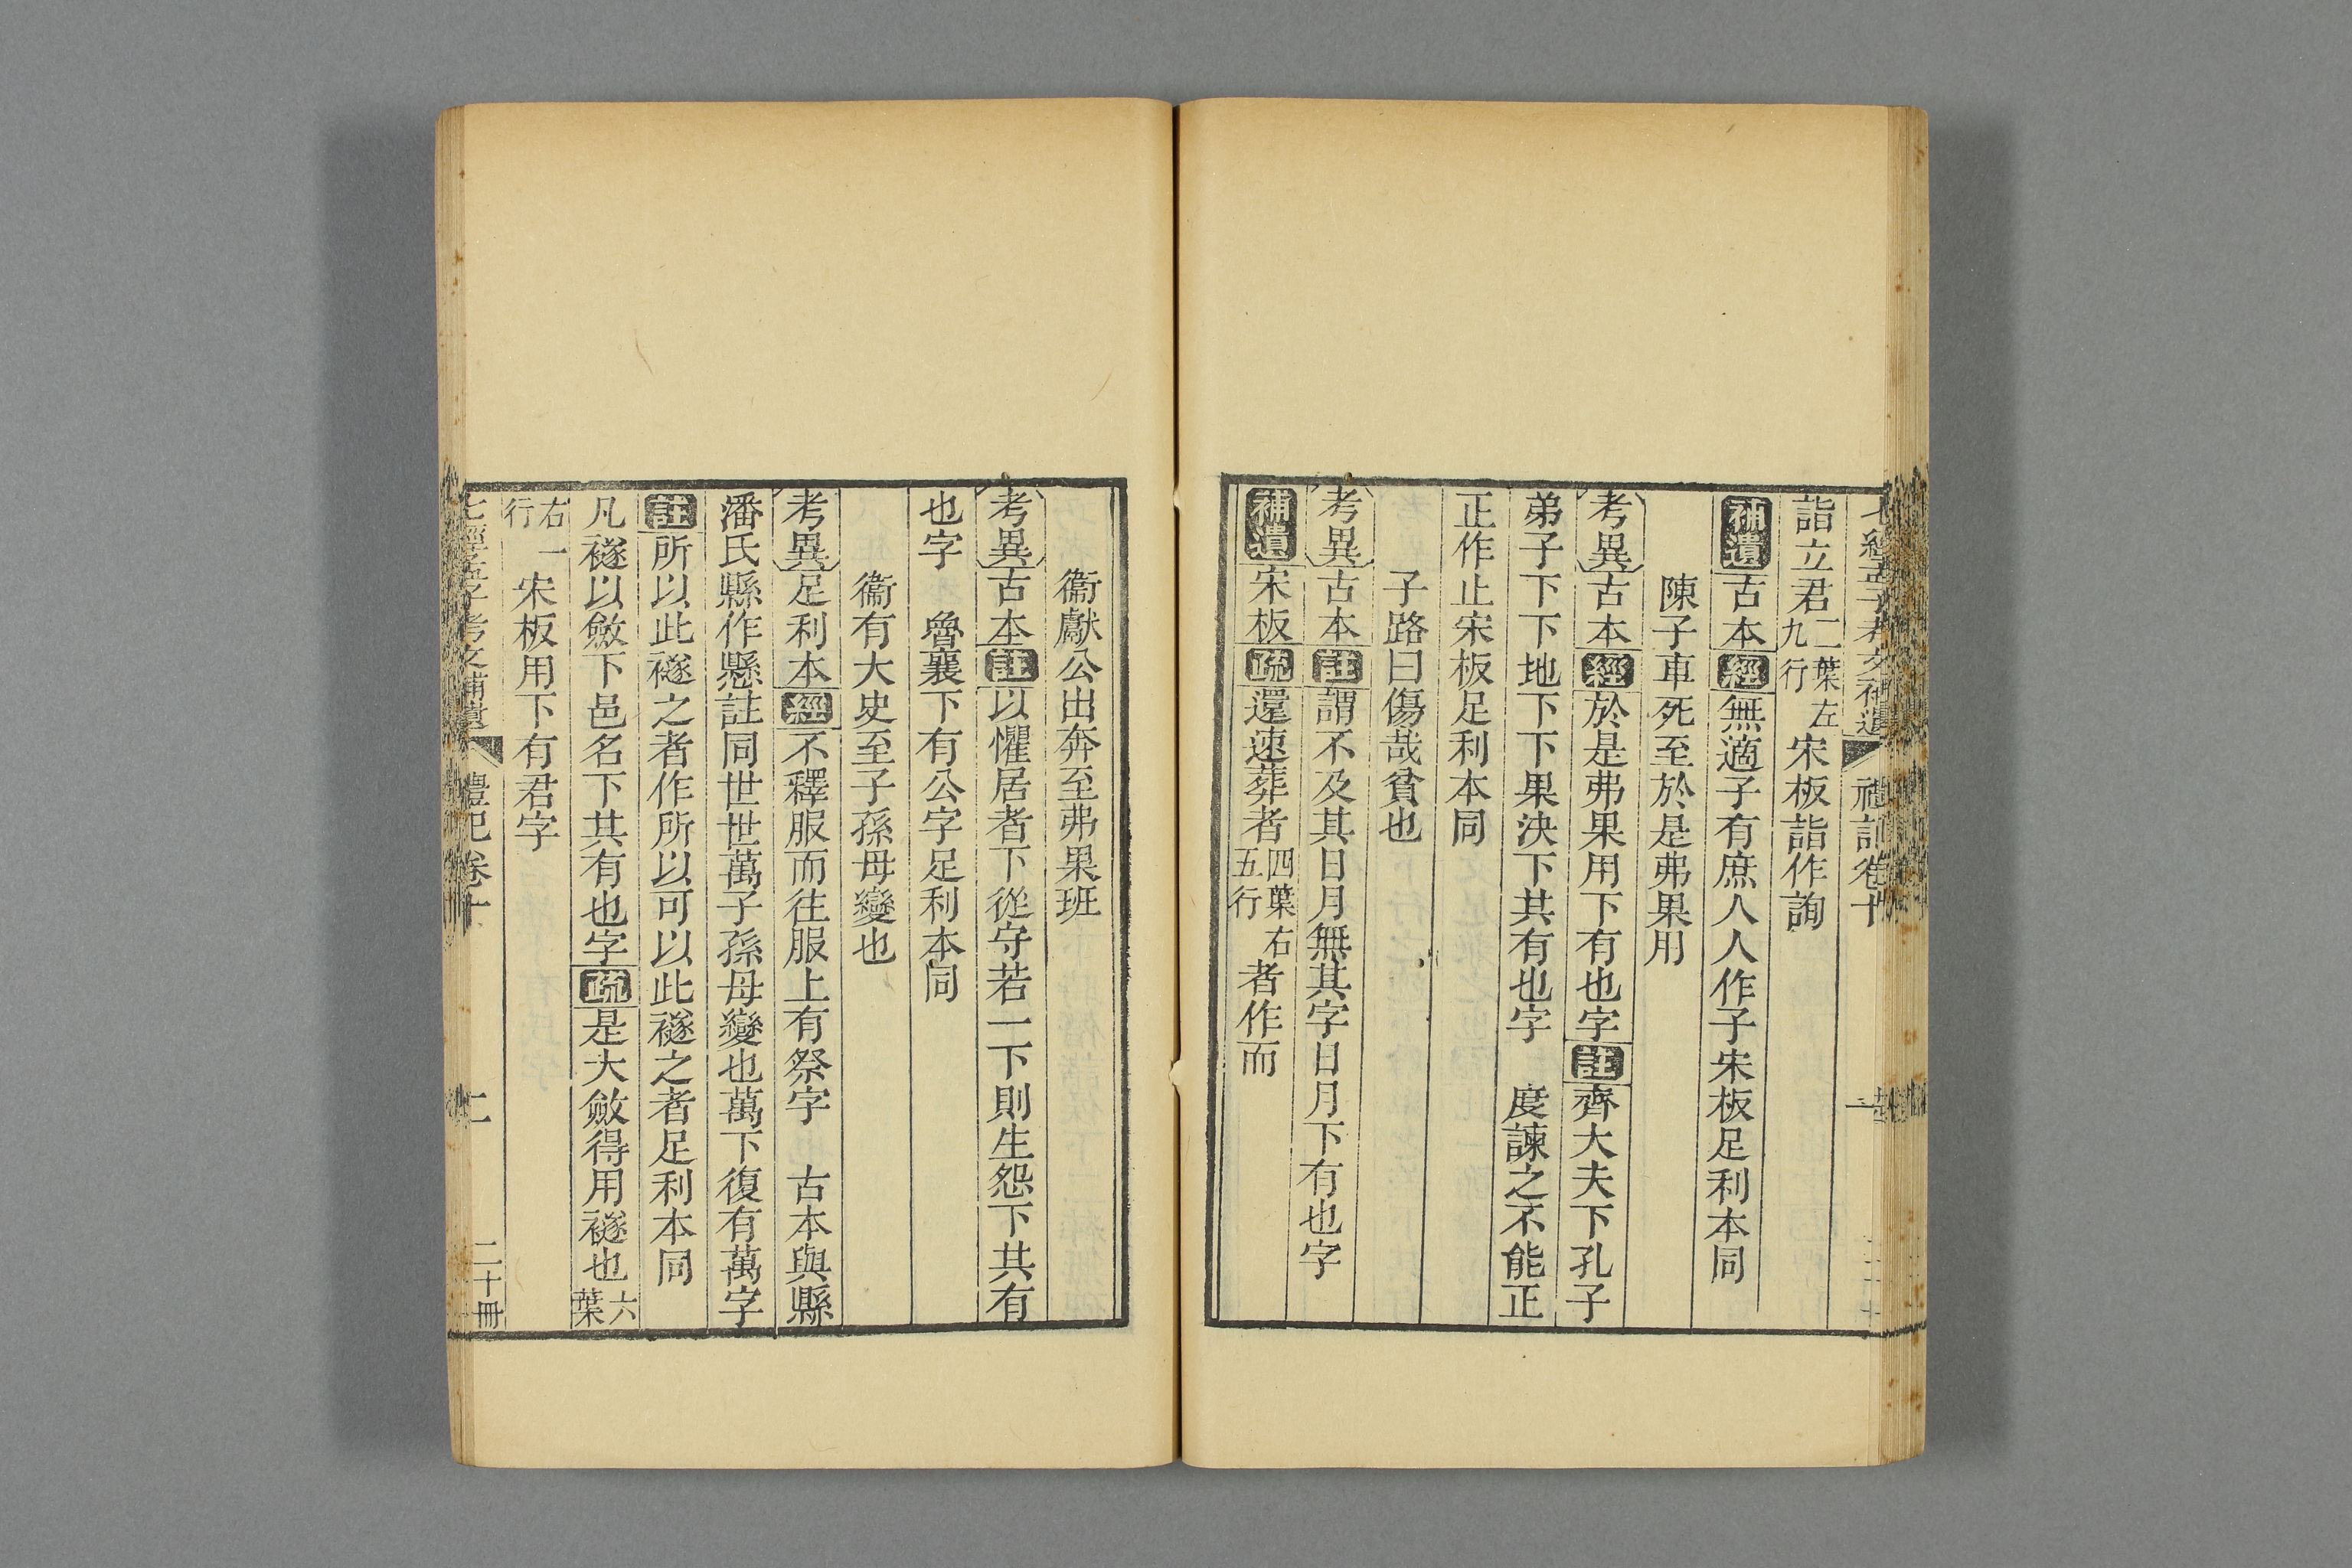 七經孟子考文補遺 禮記卷十
詣立君二葉左九行宋板詣作詢
補遺古本經無適子有庶人人作子宋板足利本同
陳子車死至於是弗果用
考異古本經於是弗果用下有也字註齊大夫下孔子
弟子下下地下下果決下共有也字 度諫之不能正
正作止宋板足利本同
子路曰傷哉貧也
考異古本註謂不及其日月無其字日月下有也字
補遺宋板疏還速葬者四葉右五行者作而
衞獻公出奔至弗果班
考異古本註以懼居者下從守若一下則生怨下共有
也字 魯襄下有公字足利本同
衞有大史至子孫毋變也
考異足利本經不釋服而往服上有祭字 古本與縣
潘氏縣作懸註同世世萬子孫毋變也萬下復有萬字
註所以此襚之者作所以可以此襚之者足利本同
凡襚以斂下邑名下共有也字疏是大斂得用襚也六葉
右一行宋板用下有君字
七經孟子考文補遺 禮記卷十 二 二十冊